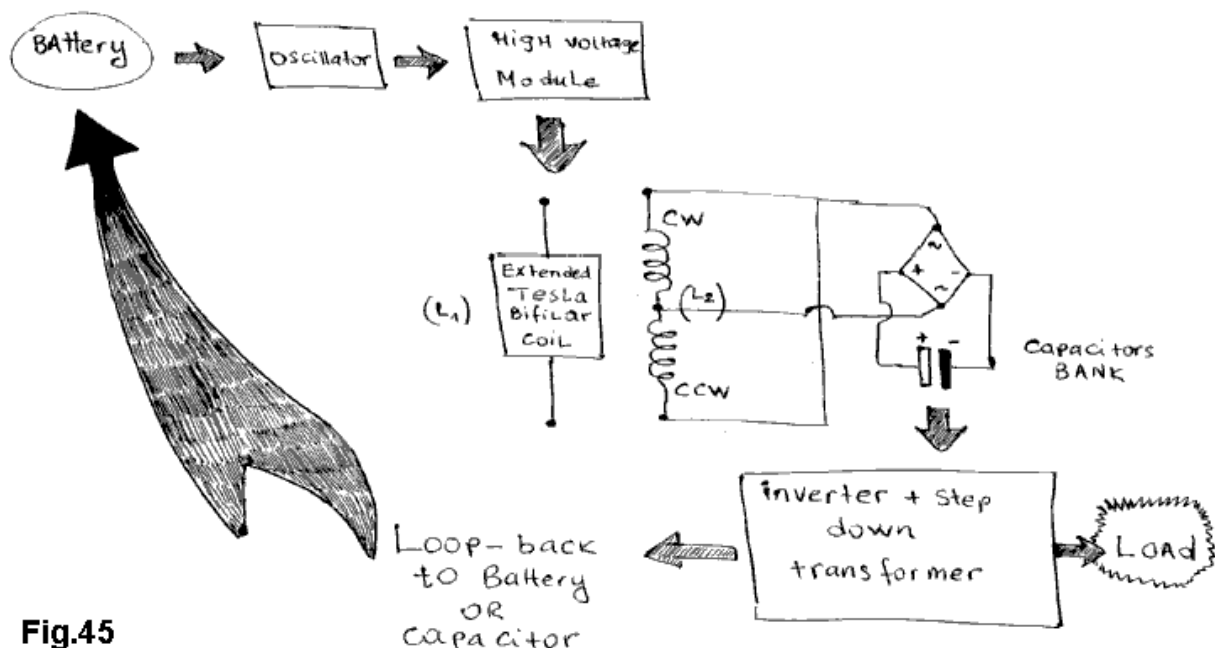 BAttery
oscillator
HigH voltage
Module
CW
Extended
Tesla
Bifilar
coil
(L1)
(L2)
CCW
~
+
-
~
+
-
Capacitors
BANK
inverter + step
down
transformer
LOAd
Loop-back
to Battery
OR
capacitor
Fig.45